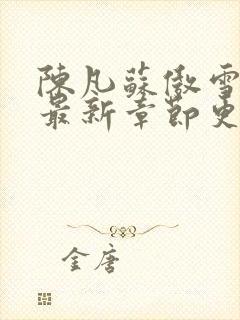 陳凡蘇傲雪
最新章節更
金唐